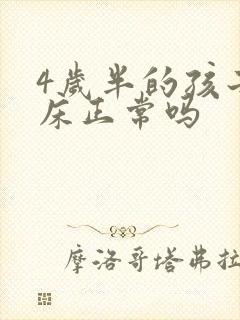 4歲半的孩
床正常吗
摩洛哥塔弗拉